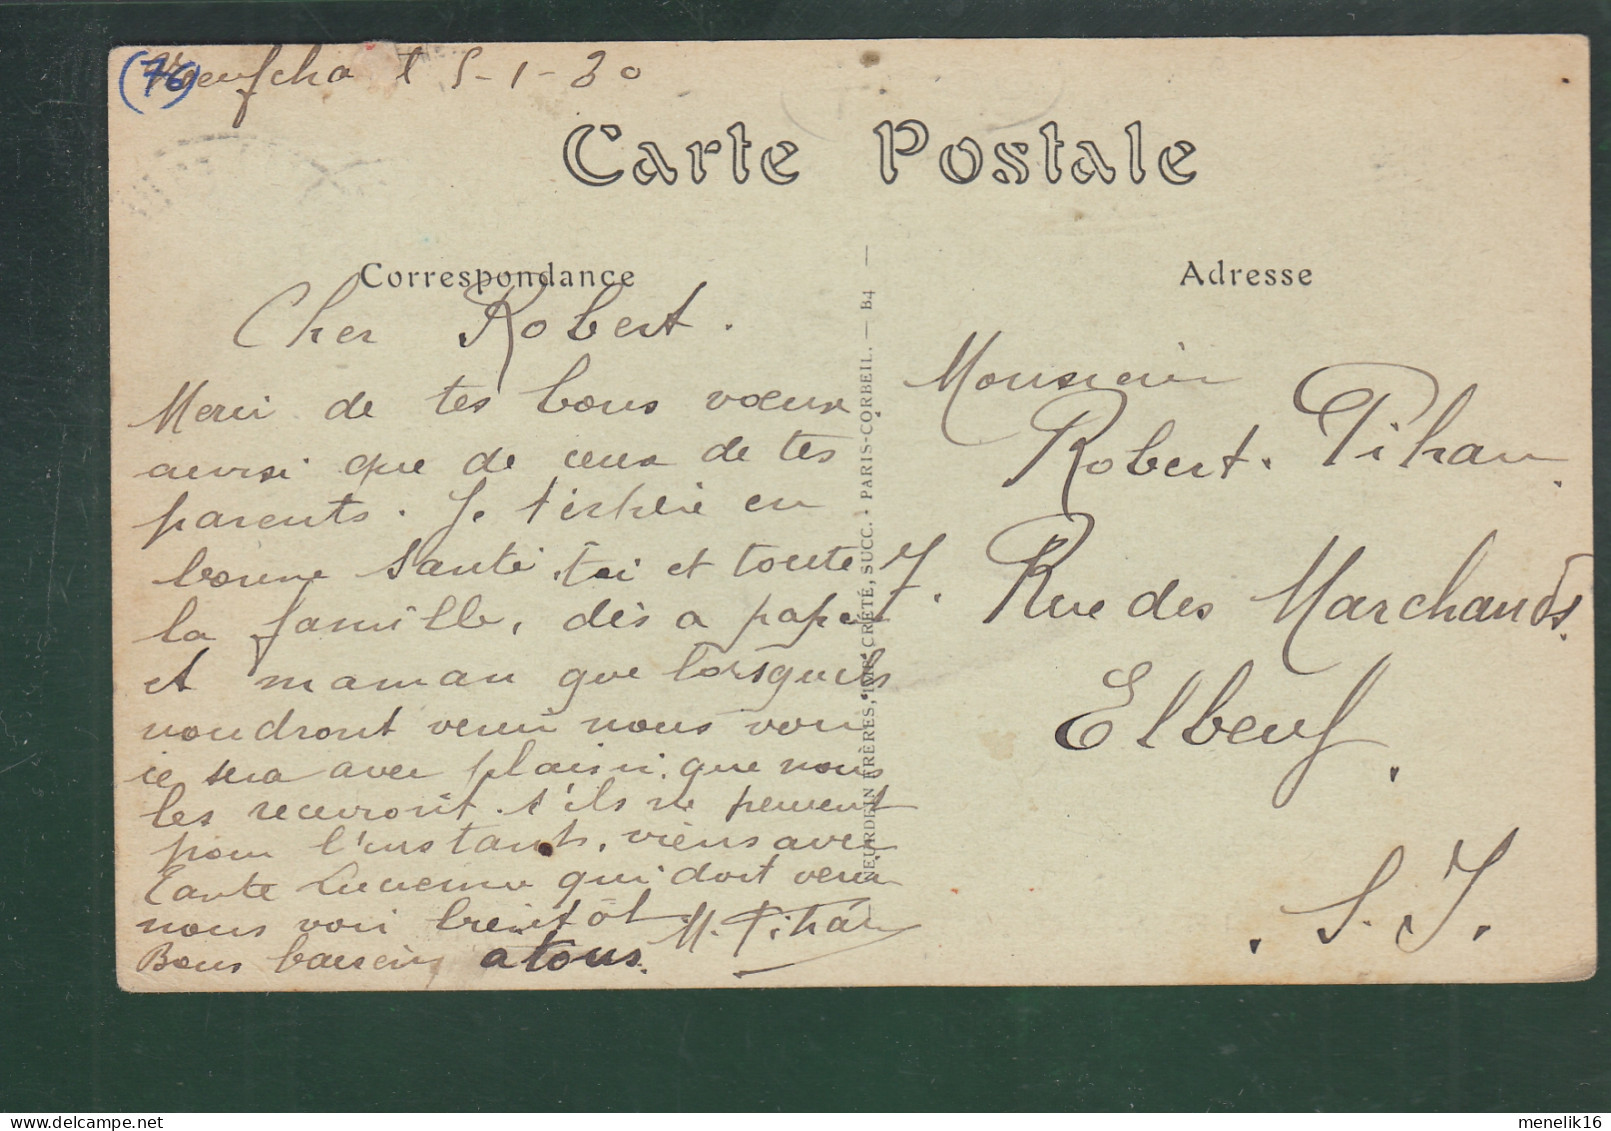 (76)
Neufcha t 5-1-30
Carte Postale
Correspondance
Cher Robert.
Merci de tes bons vœux
aussi que de ceux de tes
parents. Je t'espère en
bonne santé, toi et toute
la famille, dis a papa
et maman que lorsquels
voudront venir nous voir
ce sera avec plaisir que nous
les recevront. s'ils ne peuvent
pour l'instant, viens avec
tante Lucienne qui doit venir
nous voir bientôt M. Pihan
Bons baisers a tous.
NEURDEIN FRÈRES, IMP. CRÉTÉ, SUCC. • PARIS-CORBEIL. — B4 —
Adresse
Monsieur
Robert. Pihan.
7. Rue des Marchands.
Elbeuf.
. S. I.
menelik16